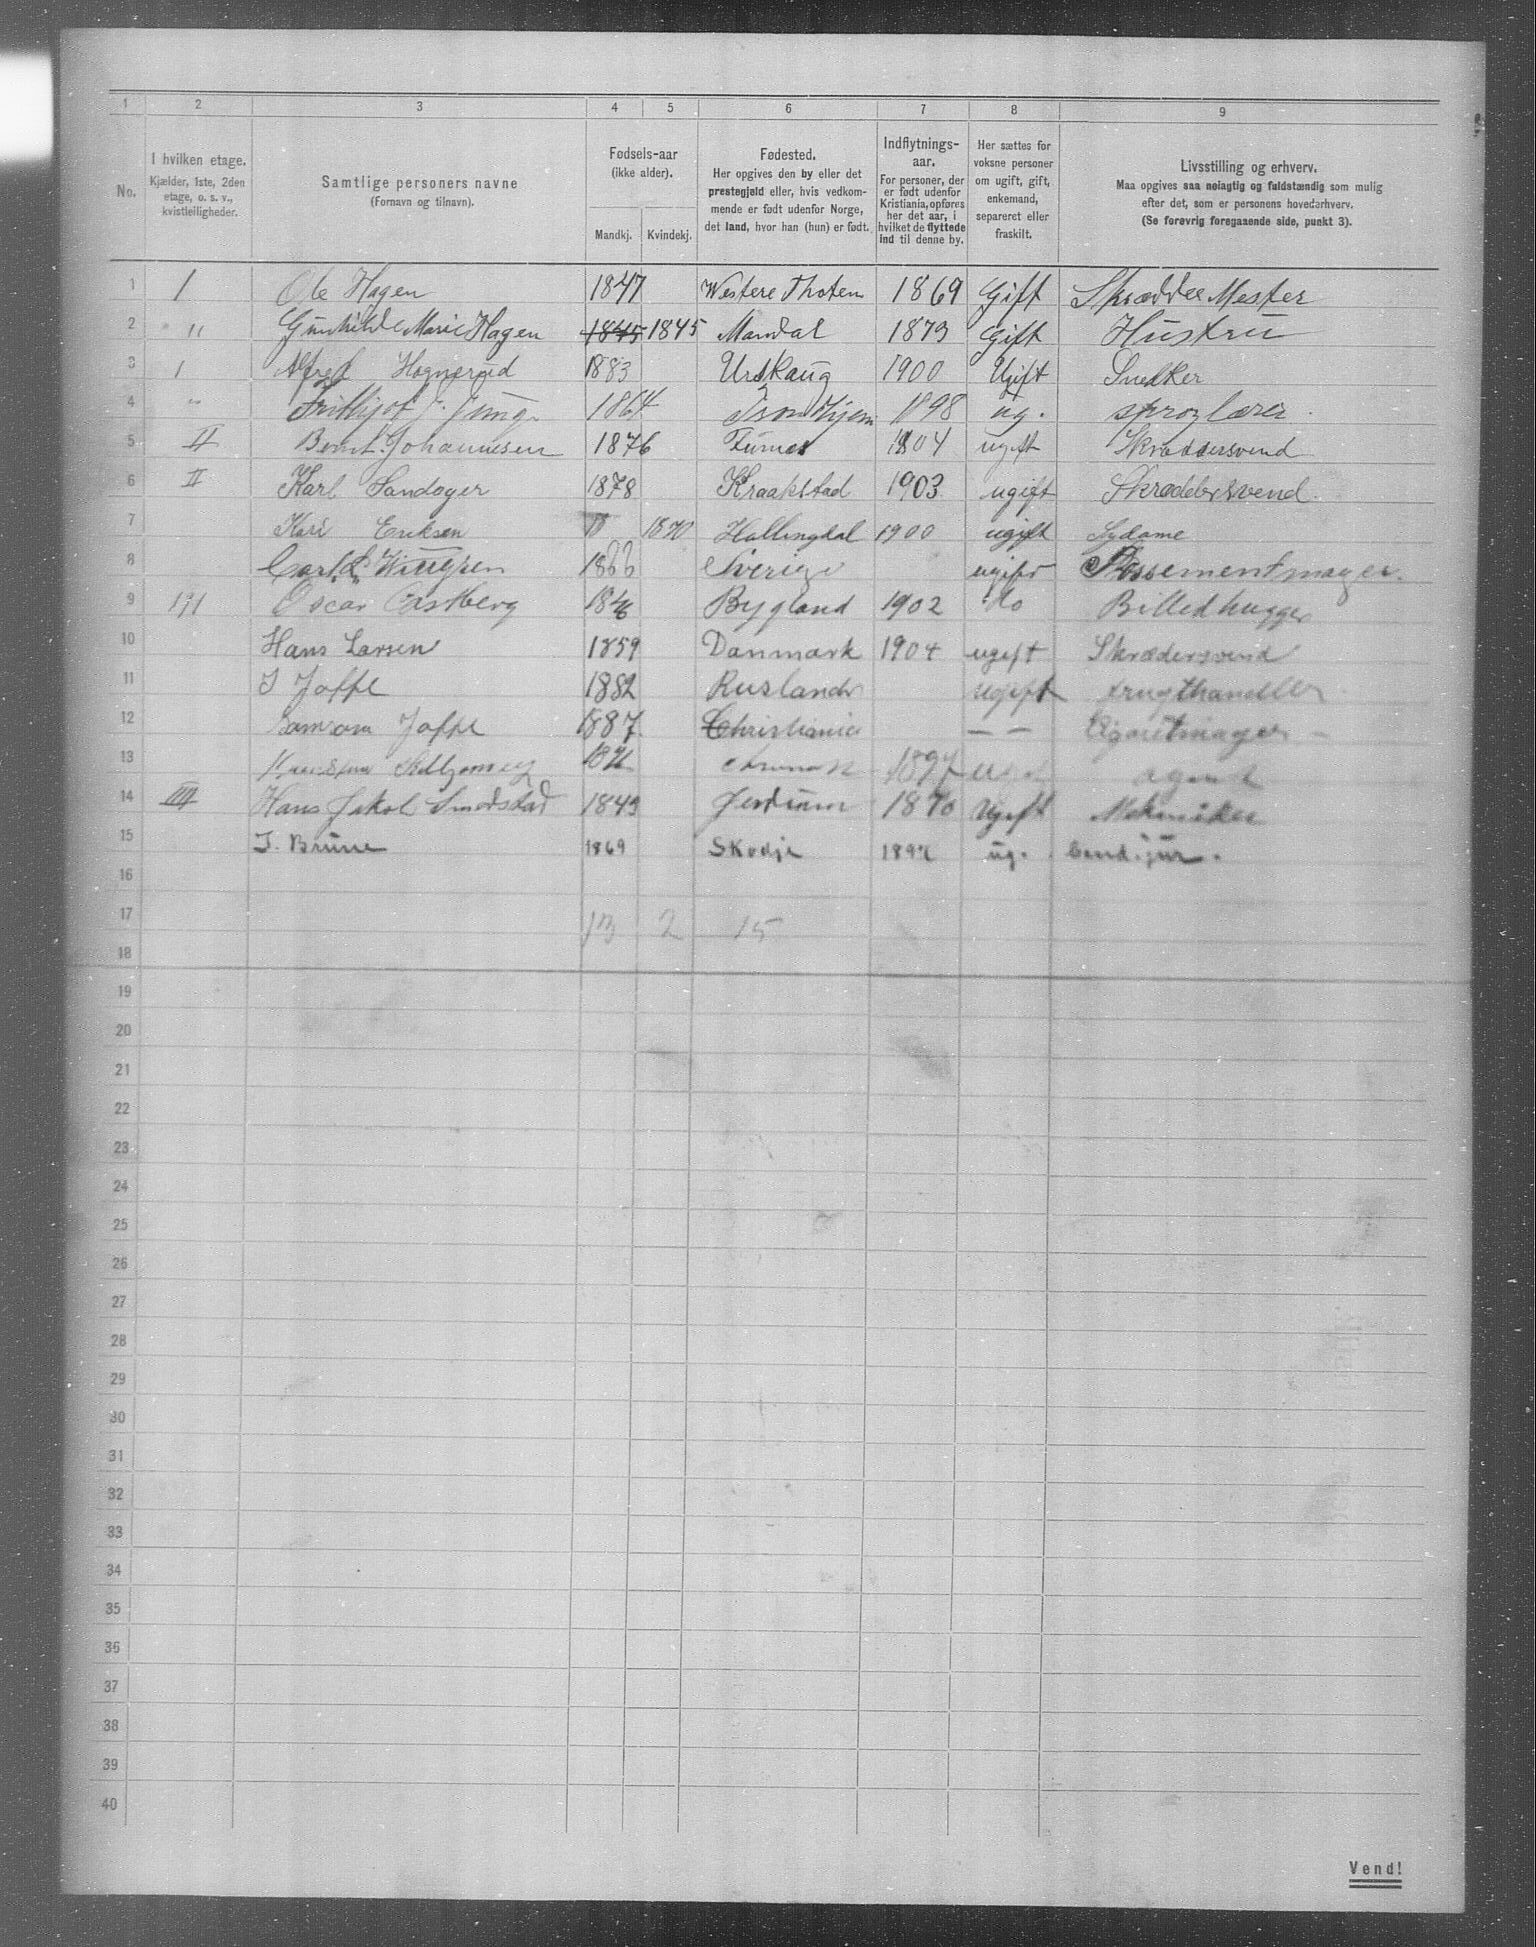 1 2 3 4 5 6 7 8 9
No.
I hvilken etage.
Kjælder, 1ste, 2den
etage, o. s. v.,
kvistleiligheder.
Samtlige personers navne
(Fornavn og tilnavn).
Fødsels-aar
(ikke alder).
Mandkj. Kvindekj.
Fødested.
Her opgives den by eller det
prestegjeld eller, hvis vedkom-
mende er født udenfor Norge,
det land, hvor han (hun) er født.
Indflytnings-
aar.
For personer, der
er født udenfor
Kristiania, opføres
her det aar, i
hvilket de flyttede
ind til denne by.
Her sættes for
voksne personer
om ugift, gift,
enkemand,
separeret eller
fraskilt.
Livsstilling og erhverv.
Maa opgives saa nøiagtig og fuldstændig som mulig
efter det, som er personens hovederhverv.
(Se forøvrig foregaaende side, punkt 3).
1 I Ole Hagen 1847 Westere Thoten 1869 Gift Skrædder Mester
2 " Gunhilde Marie Hagen 1845 1845 Mandal 1873 Gift Hustru
3 I Alfred Hognerud 1883 Urskaug 1900 Ugift Snedker
4 " Frithjof J. 1864 1898 ug. sproglærer.
5 II Bernt Johannesen 1876 Furnes 1904 ugift Skræddersvend
6 II Karl Sandager 1878 Kraakstad 1903 ugift Skræddersvend.
7 Kari Eriksen 18 1870 Hallingdal 1900 ugift Sydame
8 Carl 1866 Sverige ugift Possementmager.
9 III Oscar Castberg 1846 Bygland 1902 do Billedhugger
10 Hans Larsen 1859 Danmark 1904 ugift Skrædersvend
11 I Joffe 1882 Rusland ugift frugthandler
12 Samson Joffe 1887 Christiania — — Cigaretmager
13 1897 agent
14 III Hans Jakob Smedstad 1843 Jerdrum 1870 Ugift Mekaniker
15 J. Brune 1869 Skodje 1892 ug. Cand. jur.
16
17 13 2 15
18
19
20
21
22
23
24
25
26
27
28
29
30
31
32
33
34
35
36
37
38
39
40
Vend!